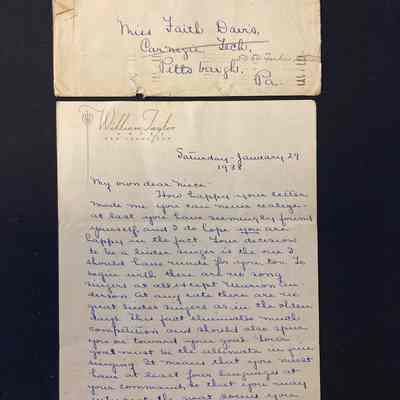 Miss Faith Davis,
Carnegie Tech.
Pittsburgh,
Pa.
William Taylor
HOTEL
SAN FRANCISCO
Saturday - January 29
1938
My own dear niece:
How happy your letter
made me you can never realize -
at last you have seemingly found
yourself and I do hope you are
happy in the fact. Your decision
to be a lieder singer is the one I
should have made for you too. To
begin with there are no song
singers at all except Marion An-
derson. At any rate there are no
great lieder singers as in the older
days. This fact eliminates much
competition and should also spur
you on toward your goal. Your
goal must be the ultimate in fine
singing. It means that you must
have at least four languages at
your command, so that you may
the most songs you